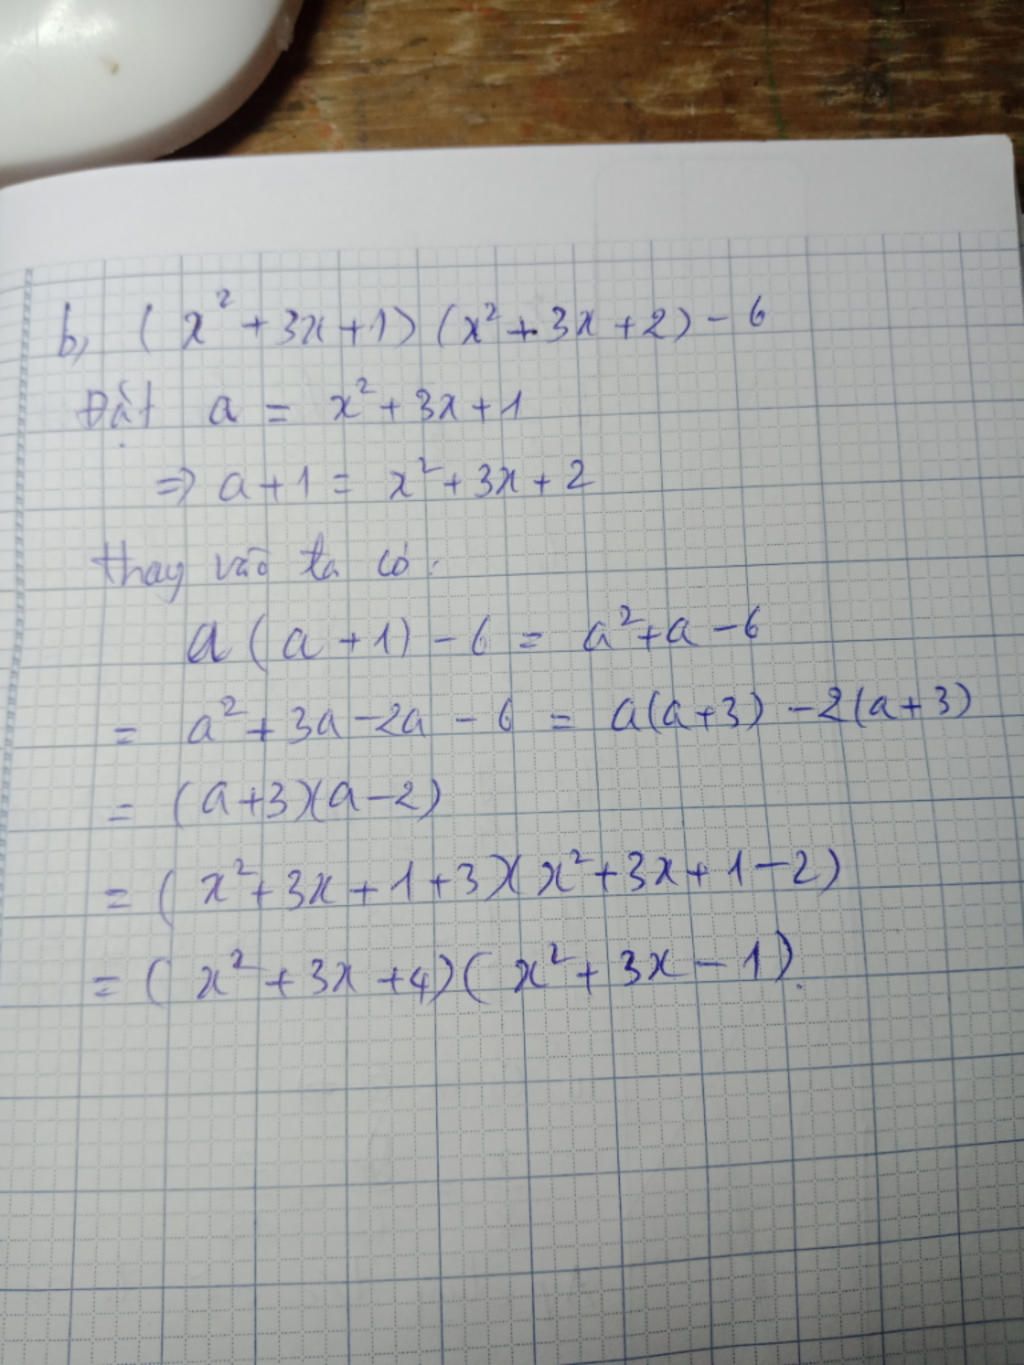 b, (x² + 3x + 1) (x² + 3x + 2) - 6
Đặt a = x² + 3x + 1
=> a + 1 = x² + 3x + 2
thay vào ta có:
a (a + 1) - 6 = a² + a - 6
= a² + 3a - 2a - 6 = a(a + 3) - 2(a + 3)
= (a + 3)(a - 2)
= (x² + 3x + 1 + 3)(x² + 3x + 1 - 2)
= (x² + 3x + 4)(x² + 3x - 1).